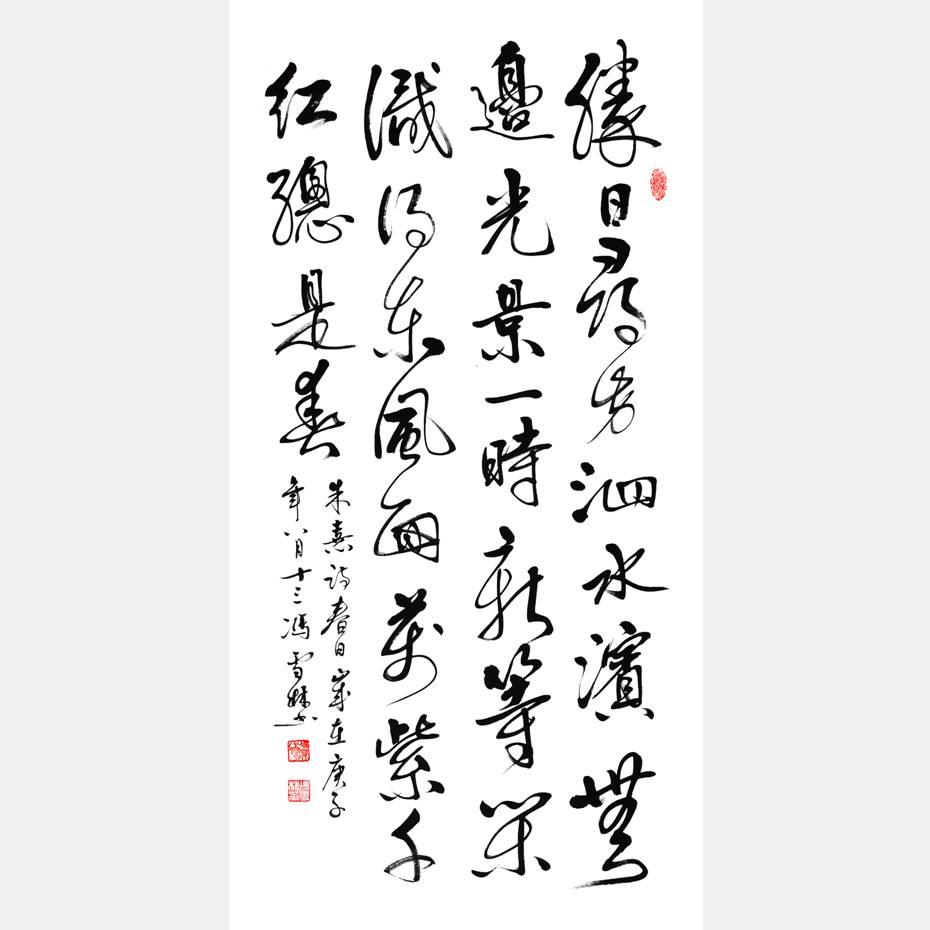 勝日尋芳泗水濱無
邊光景一時新等閑
識得東風面萬紫千
紅總是春
朱熹詩春日歲在庚子
年八月十三馮雪林書